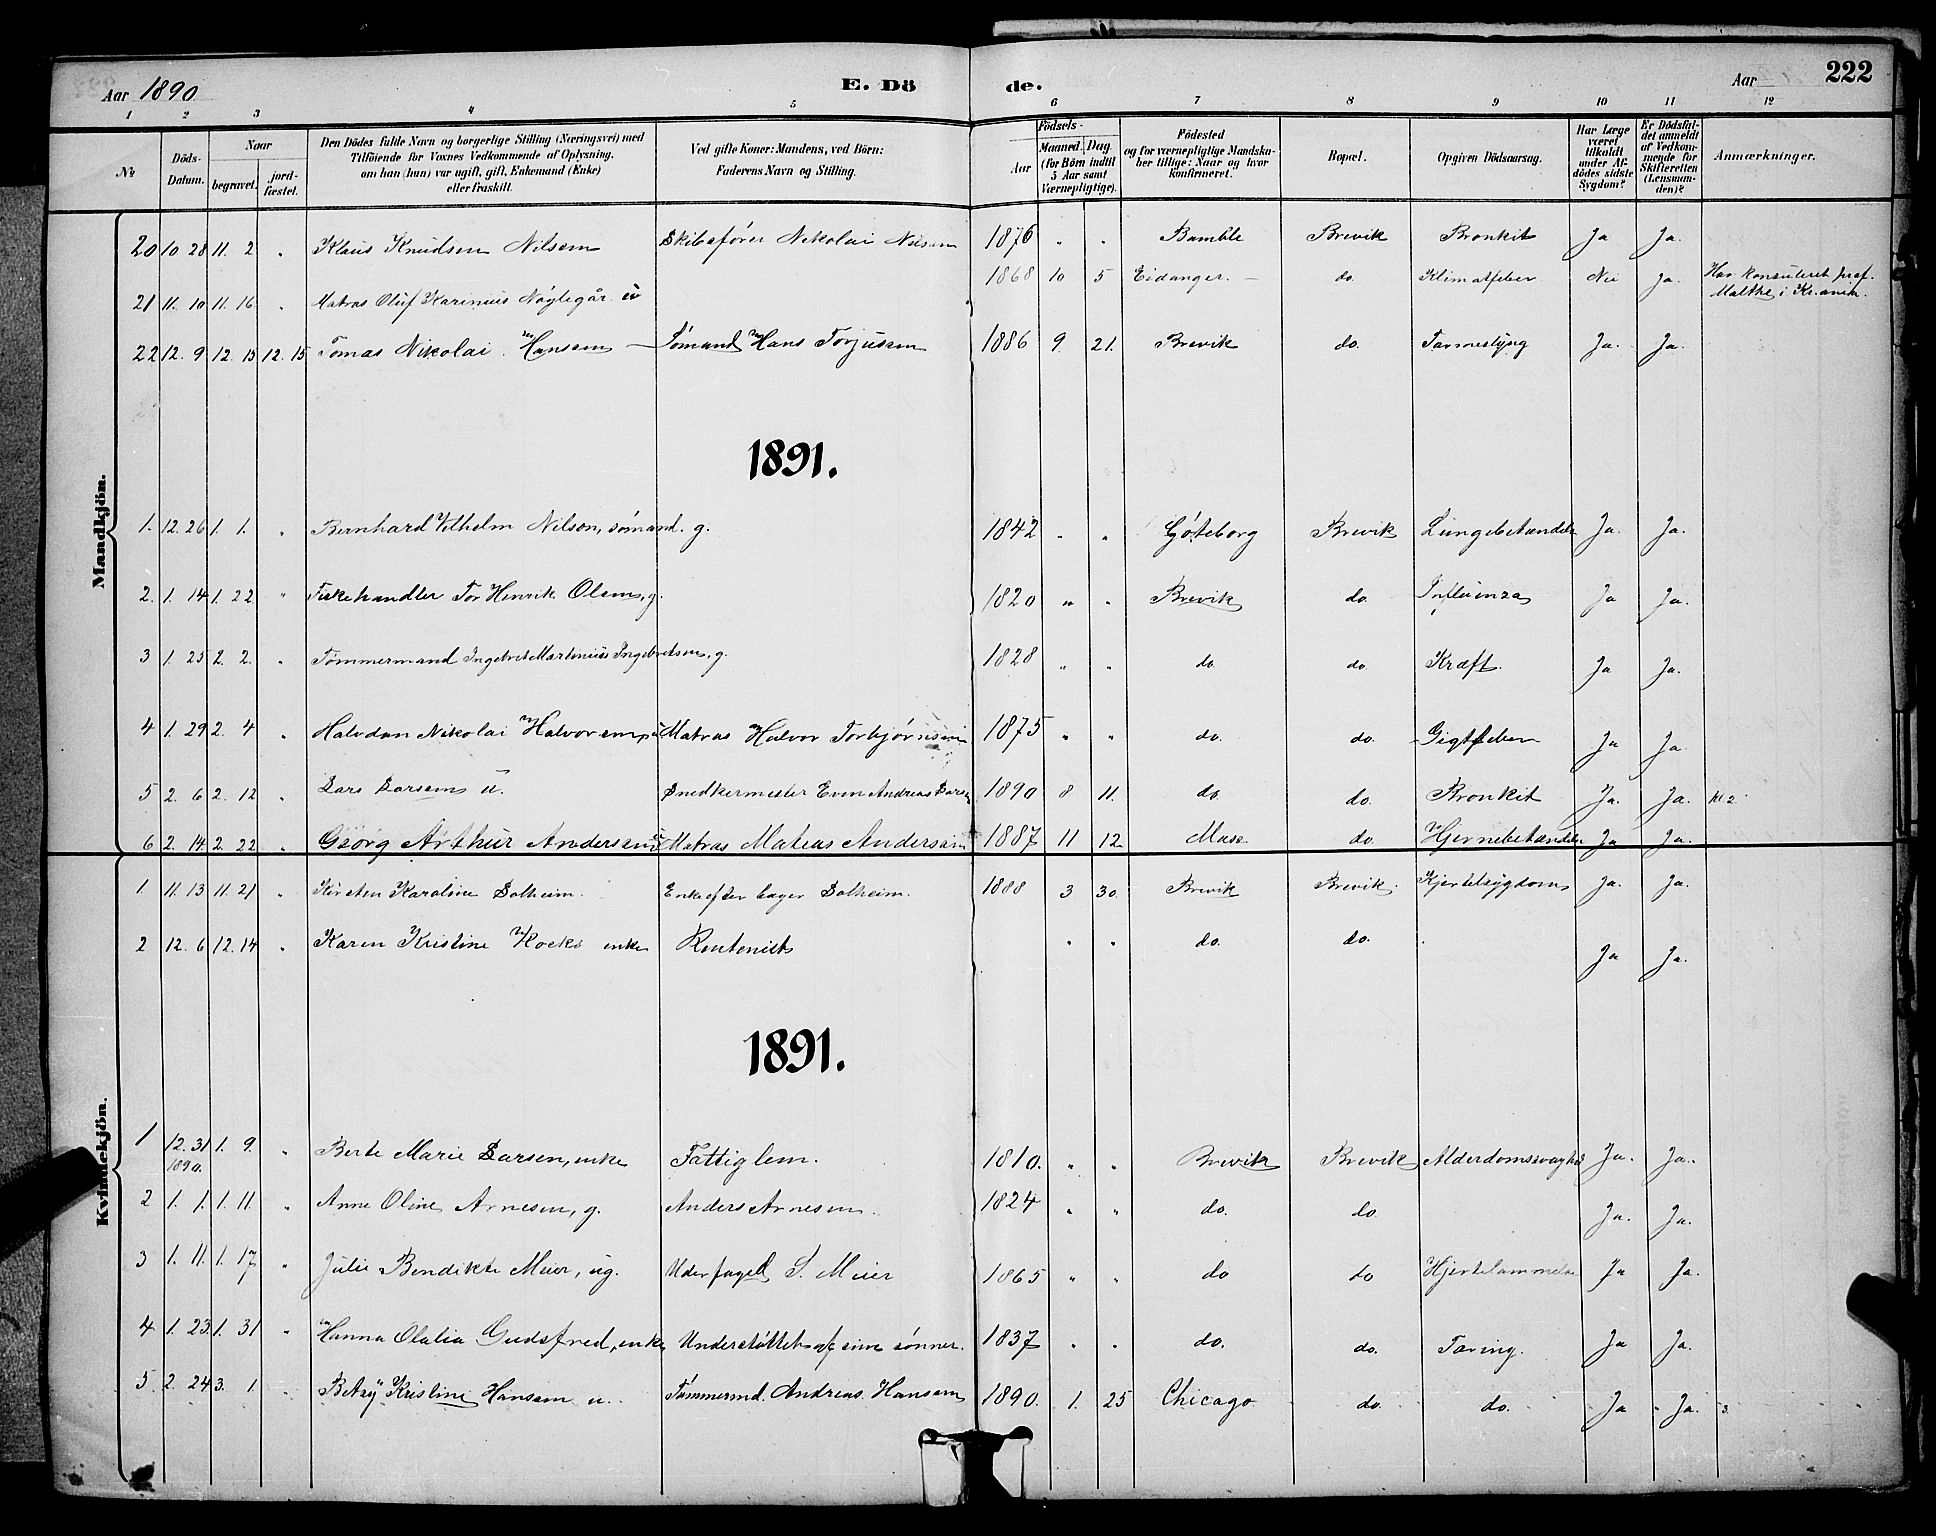 Aar 1890 E. Dö de. Aar 222
1 2 3 4 5 6 7 8 9 10 11 12
No
Döds-Datum.
Naar
begravet. jord-fæstet.
Den Dödes fulde Navn og borgerlige Stilling (Næringsvei) med
Tilföiende for Voxnes Vedkommende af Oplysning,
om han (hun) var ugift, gift, Enkemand (Enke)
eller fraskilt.
Ved gifte Koner: Mandens, ved Börn:
Faderens Navn og Stilling.
Födsels-
Aar Maaned. Dag
(for Börn indtil
5 Aar samt
Værnepligtige).
Födested
og for værnepligtige Mandska-
ber tillige: Naar og hvor
konfirmeret.
Bopæl.
Opgiven Dödsaarsag.
Har Læge
været
tilkaldt
under Af-
dödes sidste
Sygdom?
Er Dödsfal-
det anmeldt
af Vedkom-
mende for
Skifteretten
(Lensman-
den)?
Anmærkninger.
Mandkjön.
20 10 28 11. 2 " Klaus Knudsen Nilsen Skibsfører Nikolai Nilsen 1876 " " Bamble Brevik Bronkit Ja Ja.
21 11. 10 11. 16 " Matros Oluf Karinius Nøglegår. u 1868 10 5 Eidanger. do. Klimatfeber Nei Ja. Har konsuleret prof.
Malthe i Kr.ania.
22 12. 9 12. 15 12. 15 Tomas Nikolai Hansen Sømand Hans Torjusen 1886 9. 21. Brevik do. Tarmeslyng Ja. Ja.
1891.
1. 12. 26 1. 1. " Bernhard Vilhelm Nilson, sømand. g. 1842 " " Göteborg Brevik Lungebetændelse Ja. Ja.
2. 1. 14 1. 22 " Fiskehandler Tor Henrik Olsen, g. 1820 " " Brevik do. Influenza Ja Ja.
3 1. 25 2. 2. " Tømmermand Ingebret Martinius Ingebretsen, g. 1828 " " do. do. Kræft. Ja Ja.
4 1. 29 2. 4 " Halvdan Nikolai Halvorsen, u Matros Halvor Torbjørnsen 1875 " " do. do. Gigtfeber Ja Ja.
5 2. 6 2. 12 " Lars Larsen u. Snedkermester Even Andreas Larsen 1890 8 11. do. do. Bronkit Ja. Ja.
6 2. 14. 2. 22 " Georg Arthur Andersen u Matros Matias Andersen 1887 11 12 Moss do. Hjernebetændelse Ja Ja.
Kvindekjön.
1 11. 13 11. 21 " Kirsten Karoline Solheim. Enke efter bager Solheim. 1888 3 30. Brevik Brevik. Kjertelsygdom Ja. Ja.
2 12. 6 12. 14 " Karen Kristine enke Rentenist " " do. do. Ja Ja.
1891.
1 12. 31 1. 9. " Berte Marie Larsen, enke Fattiglem. 1810. " " Brevik Brevik Alderdomssvaghed Ja. Ja.
1890.
2 1. 1. 1. 11. " Anne Oline Arnesen, g. Anders Arnesen. 1824 " " do. do Ja. Ja.
3 1. 11. 1. 17 " Julie Bendikte Meier, ug. S. Meier 1865 " " do do Hjertelammelse Ja Ja.
4 1. 23. 1. 31 " Hanna Olalia Gudsfred, enke Understøttet af sine sønner. 1837 " " do. do. Tæring. Ja Ja.
5 2. 24 3. 1 " Betsy Kristine Hansen u. Tømmermd. Andreas Hansen 1890. 1. 25 Chicago do. do. Ja Ja. 3.